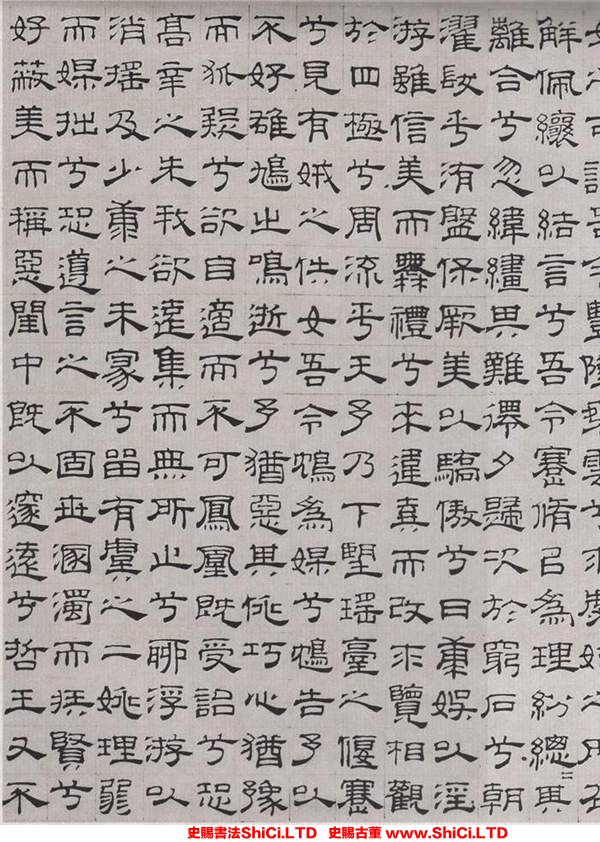 解佩纕以結言兮吾令蹇脩以為理紛總〻其
離合兮忽緯繣其難遷夕歸次於窮石兮朝
濯髮乎洧盤保厥美以驕傲兮日康娛以淫
游雖信美而無禮兮來違棄而改求覽相觀
於四極兮周流乎天予乃下望瑤臺之偃蹇
兮見有娀之佚女吾令鴆為媒兮鴆告予以
不好雄鳩之鳴逝兮予猶惡其佻巧心猶豫
而狐疑兮欲自適而不可鳳凰既受詒兮恐
高辛之先我欲遠集而無所止兮聊浮游以
消搖及少康之未家兮留有虞之二姚理弱
而媒拙兮恐導言之不固世溷濁而嫉賢兮
好蔽美而稱惡閨中既以邃遠兮哲王又不
史賜書法ShiCi.LTD 史賜古董 www.ShiCi.LTD